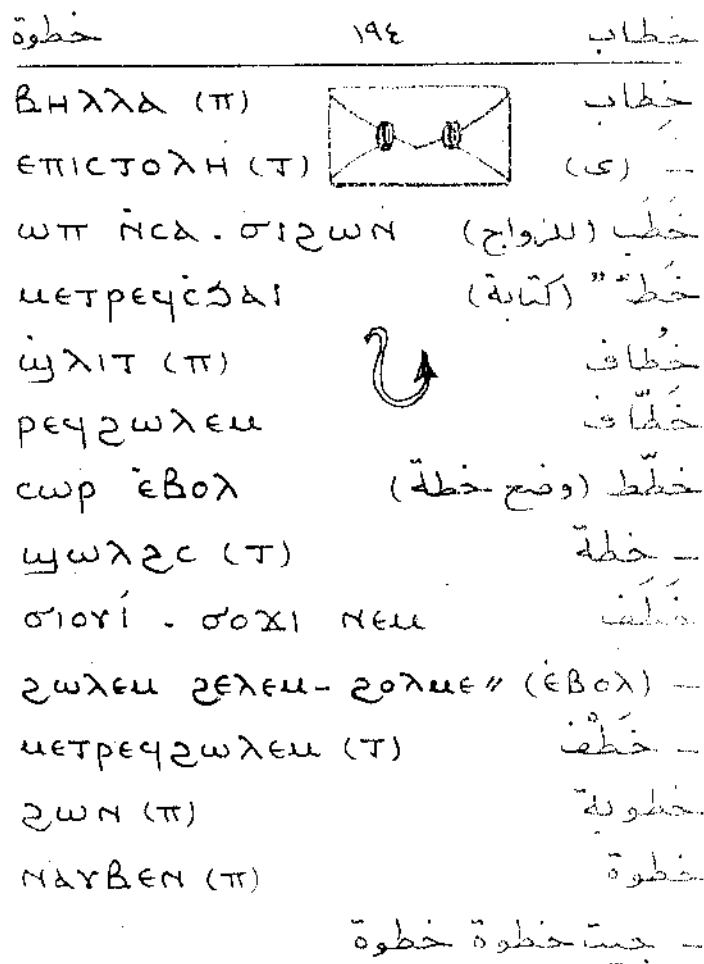 خطوة ١٩٤ خطاب
ⲃⲏⲗⲗⲁ (ⲡ) خِطاب
ⲉⲡⲓⲥⲧⲟⲗⲏ (ⲧ) – (ى)
ⲱⲡ ⲛ̀ⲥⲁ . ϭⲓϩⲱⲛ خَطَب (للزواج)
ⲙⲉⲧⲣⲉϥⲥ̀ϧⲁⲓ خَط " (كتابة)
ϣ̀ⲗⲓⲧ (ⲡ) خُطاف
ⲣⲉϥϩⲱⲗⲉⲙ خَطّاف
ⲥⲱⲣ ⲉ̀ⲃⲟⲗ خطّط (وضع خطة)
ϣⲱⲗϩⲥ (ⲧ) – خطة
ϭⲓⲟⲩⲓ̀ . ϭⲟϫⲓ ⲛⲉⲙ خَطَف
ϩⲱⲗⲉⲙ ϩⲉⲗⲉⲙ- ϩⲟⲗⲙⲉ〃 (ⲉ̀ⲃⲟⲗ) –
ⲙⲉⲧⲣⲉϥϩⲱⲗⲉⲙ (ⲧ) – خَطْف
ϩⲱⲛ (ⲡ) خطوبة
ⲛⲁⲩⲃⲉⲛ (ⲡ) خطوة
– جيت خطوة خطوة